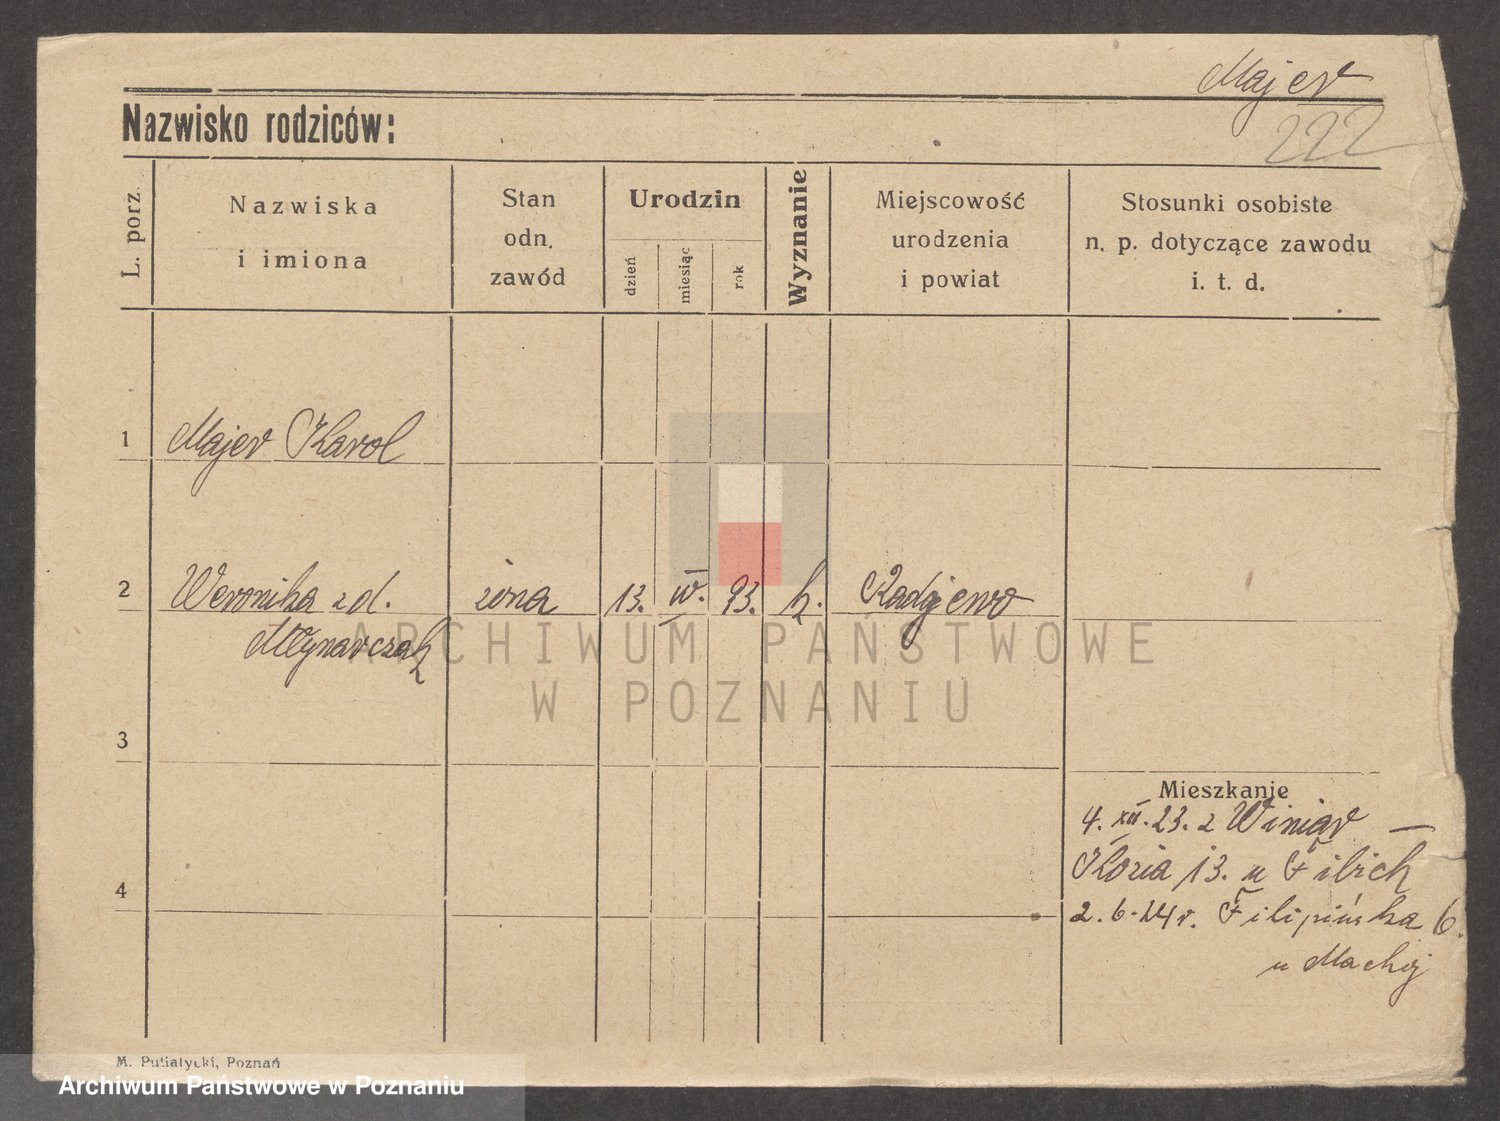 Majer
222
Nazwisko rodziców:
L. porz.
Nazwiska
i imiona
Stan
odn.
zawód
Urodzin
dzień
miesiąc
rok
Wyznanie
Miejscowość
urodzenia
i powiat
Stosunki osobiste
n. p. dotyczące zawodu
i. t. d.
1 Majer Karol
2 Weronika z d. żona 13. IV. 93. k. Radzjewo
Młynarczak
ARCHIWUM PAŃSTWOWE
W POZNANIU
3
Mieszkanie
4. XII. 23. z Winiar —
Kozia 13. u Filich
4
2. 6. 24 r. Filipińska 6.
u Machej
M. Putiatycki, Poznań
Archiwum Państwowe w Poznaniu